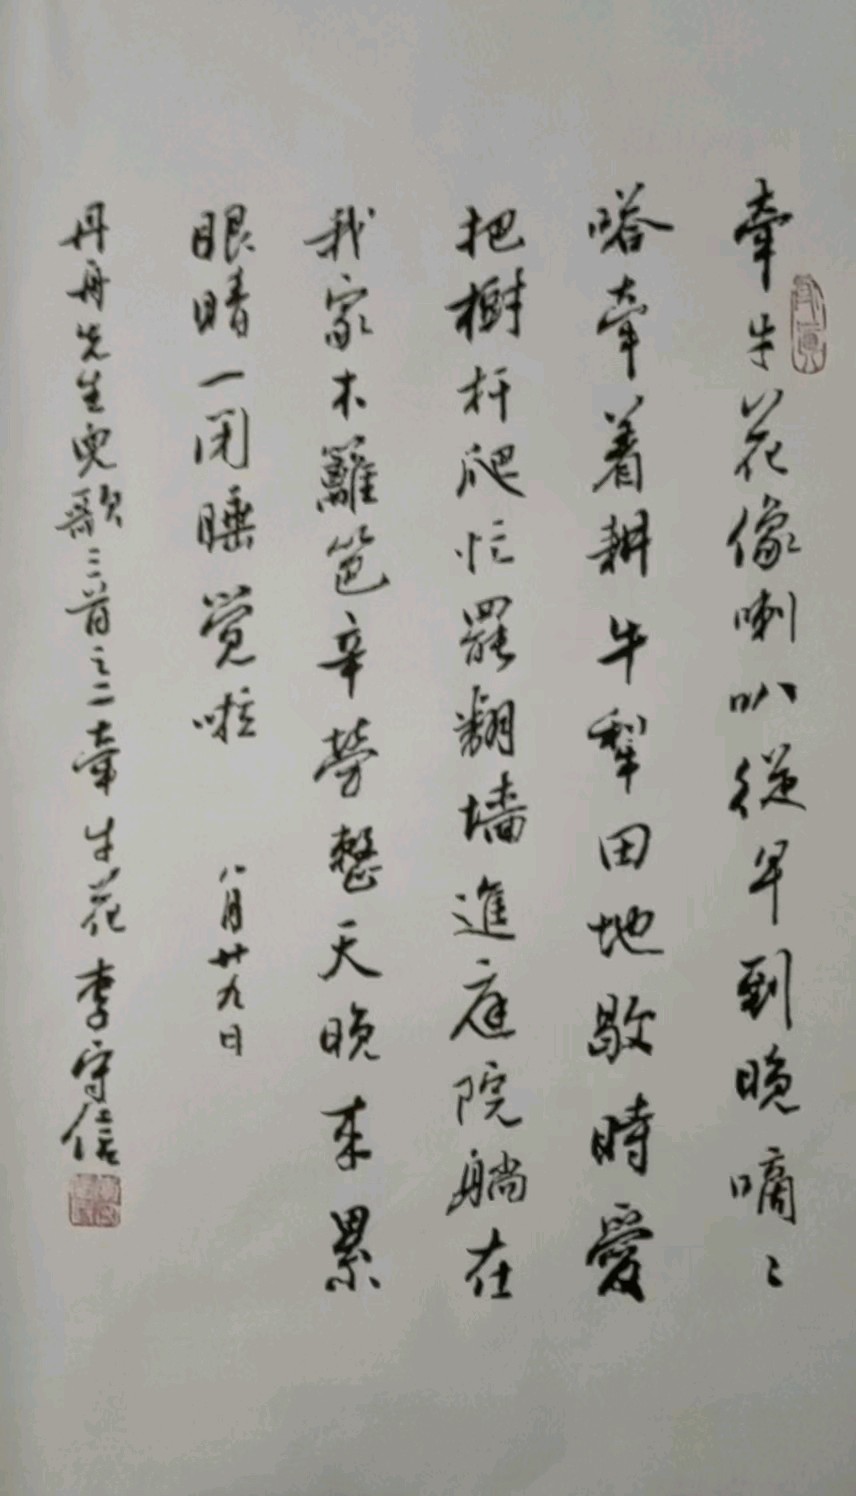 牽牛花像喇叭從早到晚嘀〻
嗒牽着耕牛犁田地歇時愛
把樹杆爬忙罷翻墻進庭院躺在
我家木籬笆辛勞整天晚来累
眼睛一闭睡覺啦
八月廿九日
丹丹先生兒歌三首之二牽牛花李守信